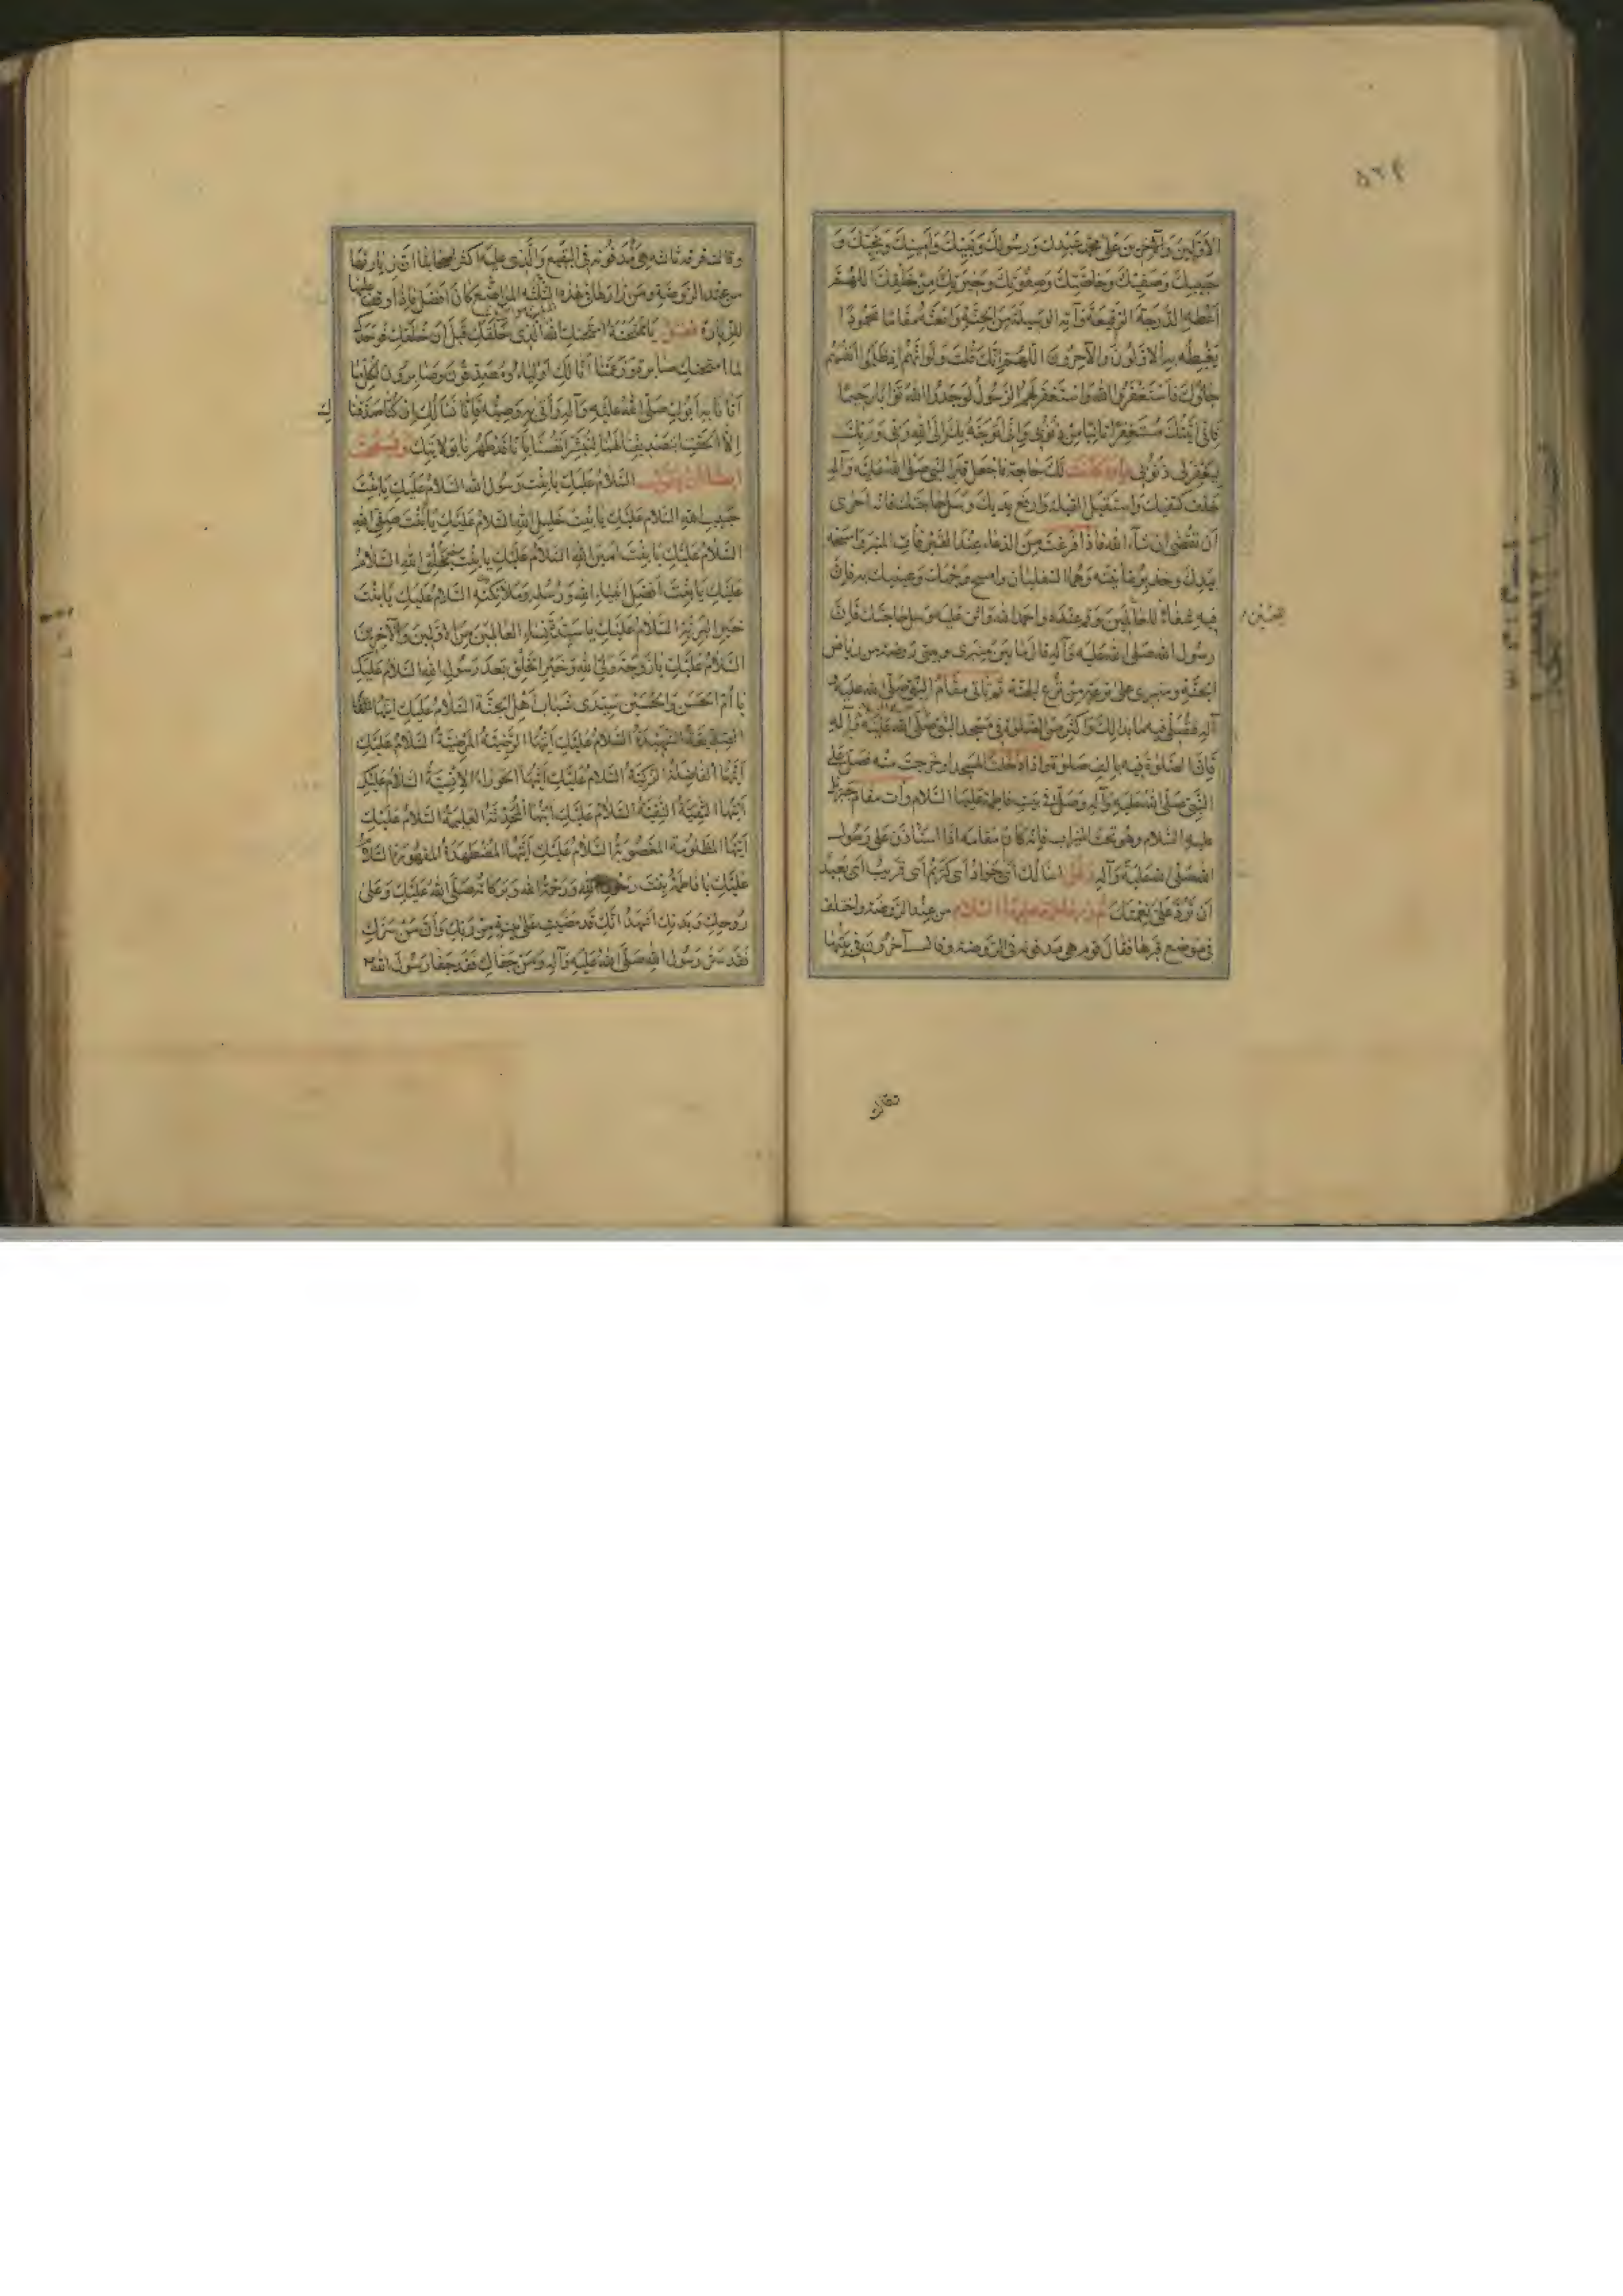 ٥٢٤
الاَوَّلِينَ وَالآخِرِينَ عَلى مُحَمَّدٍ عَبْدِكَ وَرَسُولِكَ وَنَبِيِّكَ وَأَمِينِكَ وَنَجِيِّكَ وَ
حَبِيبِكَ وَصَفِيِّكَ وَخَاصَّتِكَ وَصِفْوَتِكَ وَخِيَرَتِكَ مِنْ خَلْقِكَ اللهُمَّ
اَعْطِهِ الدَّرَجَةَ الرَّفِيعَةَ وَآتِهِ الْوَسِيلَةَ مِنَ الْجَنَّةِ وَابْعَثْهُ مَقَامًا مَحْمُودًا
يَغْبِطُهُ بِهِ الاَوَّلُونَ وَالآخِرُونَ اللهُمَّ اِنَّكَ قُلْتَ وَلَوْ اَنَّهُمْ اِذْ ظَلَمُوا اَنْفُسَهُمْ
جَاؤُكَ فَاسْتَغْفَرُوا اللهَ وَاسْتَغْفَرَ لَهُمُ الرَّسُولُ لَوَجَدُوا اللهَ تَوَّابًا رَحِيمًا
وَاِنِّي اَتَيْتُكَ مُسْتَغْفِرًا تَائِبًا مِنْ ذُنُوبِي وَاِنِّي اَتَوَجَّهُ بِكَ اِلَى اللهِ رَبِّي وَرَبِّكَ
لِيَغْفِرَ لِي ذُنُوبِي وَاِنْ كَانَتْ لَكَ حَاجَةٌ فَاجْعَلْ قَبْرَ النَّبِيِّ صَلَّى اللهُ عَلَيْهِ وَآلِهِ
خَلْفَ كَتِفَيْكَ وَاسْتَقْبِلِ الْقِبْلَةَ وَارْفَعْ يَدَيْكَ وَسَلْ حَاجَتَكَ فَاِنَّهُ اَحْرَى
اَنْ تُقْضَى اِنْ شَاءَ اللهُ فَاِذَا فَرَغْتَ مِنَ الدُّعَاءِ عِنْدَ الْقَبْرِ فَأْتِ الْمِنْبَرَ وَامْسَحْهُ
بِيَدِكَ وَخُذْ بِرُمَّانَتَيْهِ وَهُمَا السُّفْلَيَانِ وَامْسَحْ وَجْهَكَ وَعَيْنَيْكَ بِهِ فَاِنَّ
فِيهِ شِفَاءً لِلْعَيْنَيْنِ وَقُمْ عِنْدَهُ وَاحْمَدِ اللهَ وَاثْنِ عَلَيْهِ وَسَلْ حَاجَتَكَ فَاِنَّ
رَسُولَ اللهِ صَلَّى اللهُ عَلَيْهِ وَآلِهِ قَالَ مَا بَيْنَ مِنْبَرِي وَبَيْتِي رَوْضَةٌ مِنْ رِيَاضِ
الْجَنَّةِ وَمِنْبَرِي عَلَى تُرْعَةٍ مِنْ تُرَعِ الْجَنَّةِ ثُمَّ تَأْتِي مَقَامَ النَّبِيِّ صَلَّى اللهُ عَلَيْهِ وَ
آلِهِ فَتُصَلِّي فِيهِ مَا بَدَا لَكَ وَاَكْثِرْ مِنَ الصَّلٰوةِ فِي مَسْجِدِ النَّبِيِّ صَلَّى اللهُ عَلَيْهِ وَآلِهِ
فَاِنَّ الصَّلٰوةَ فِيهِ بِاَلْفِ صَلٰوةٍ وَاِذَا دَخَلْتَ الْمَسْجِدَ اَوْ خَرَجْتَ مِنْهُ فَصَلِّ عَلَى
النَّبِيِّ صَلَّى اللهُ عَلَيْهِ وَآلِهِ وَصَلِّ فِي بَيْتِ فَاطِمَةَ عَلَيْهَا السَّلَامُ وَأْتِ مَقَامَ جَبْرَئِيلَ
عَلَيْهِ السَّلَامُ وَهُوَ تَحْتَ الْمِيزَابِ فَاِنَّهُ كَانَ مَقَامَهُ اِذَا اسْتَأْذَنَ عَلَى رَسُولِ
اللهِ صَلَّى اللهُ عَلَيْهِ وَآلِهِ وَقُلْ اَسْأَلُكَ اَيْ جَوَادُ اَيْ كَرِيمُ اَيْ قَرِيبُ اَيْ بَعِيدُ
اَنْ تَرُدَّ عَلَيَّ نِعْمَتَكَ ثُمَّ زُرْ فَاطِمَةَ عَلَيْهَا السَّلَامُ مِنْ عِنْدِ الرَّوْضَةِ وَاخْتُلِفَ
فِي مَوْضِعِ قَبْرِهَا فَقَالَ قَوْمٌ هِيَ مَدْفُونَةٌ فِي الرَّوْضَةِ وَقَالَ آخَرُونَ فِي بَيْتِهَا
وَقَالَتْ فِرْقَةٌ ثَالِثَةٌ هِيَ مَدْفُونَةٌ فِي الْبَقِيعِ وَالَّذِي عَلَيْهِ اَكْثَرُ اَصْحَابِنَا اَنَّ زِيَارَتَهَا
مِنْ عِنْدِ الرَّوْضَةِ وَمَنْ زَارَهَا فِي هٰذِهِ الثَّلٰثَةِ الْمَوَاضِعِ كَانَ اَفْضَلَ فَاِذَا وَقَفَ عَلَيْهَا
لِلزِّيَارَةِ فَلْيَقُلْ يَا مُمْتَحَنَةُ امْتَحَنَكِ اللهُ الَّذِي خَلَقَكِ قَبْلَ اَنْ يَخْلُقَكِ فَوَجَدَكِ
لِمَا امْتَحَنَكِ صَابِرَةً وَزَعَمْنَا اَنَّا لَكِ اَوْلِيَاءُ وَمُصَدِّقُونَ وَصَابِرُونَ لِكُلِّ مَا
اَتَانَا بِهِ اَبُوكِ صَلَّى اللهُ عَلَيْهِ وَآلِهِ وَاَتَى بِهِ وَصِيُّهُ فَاِنَّا نَسْأَلُكِ اِنْ كُنَّا صَدَّقْنَاكِ
اِلَّا اَلْحَقْتِنَا بِتَصْدِيقِنَا لَهُمَا لِنُبَشِّرَ اَنْفُسَنَا بِاَنَّا قَدْ طَهُرْنَا بِوَلَايَتِكِ وَيُسْتَحَبُّ
اَيْضًا اَنْ يَقُولَ السَّلَامُ عَلَيْكِ يَا بِنْتَ رَسُولِ اللهِ السَّلَامُ عَلَيْكِ يَا بِنْتَ
حَبِيبِ اللهِ السَّلَامُ عَلَيْكِ يَا بِنْتَ خَلِيلِ اللهِ السَّلَامُ عَلَيْكِ يَا بِنْتَ صَفِيِّ اللهِ
السَّلَامُ عَلَيْكِ يَا بِنْتَ اَمِينِ اللهِ السَّلَامُ عَلَيْكِ يَا بِنْتَ خَيْرِ خَلْقِ اللهِ السَّلَامُ
عَلَيْكِ يَا بِنْتَ اَفْضَلِ اَنْبِيَاءِ اللهِ وَرُسُلِهِ وَمَلَائِكَتِهِ السَّلَامُ عَلَيْكِ يَا بِنْتَ
خَيْرِ الْبَرِيَّةِ السَّلَامُ عَلَيْكِ يَا سَيِّدَةَ نِسَاءِ الْعَالَمِينَ مِنَ الاَوَّلِينَ وَالآخِرِينَ
السَّلَامُ عَلَيْكِ يَا زَوْجَةَ وَلِيِّ اللهِ وَخَيْرِ الْخَلْقِ بَعْدَ رَسُولِ اللهِ السَّلَامُ عَلَيْكِ
يَا اُمَّ الْحَسَنِ وَالْحُسَيْنِ سَيِّدَيْ شَبَابِ اَهْلِ الْجَنَّةِ السَّلَامُ عَلَيْكِ اَيَّتُهَا
الصِّدِّيقَةُ الشَّهِيدَةُ السَّلَامُ عَلَيْكِ اَيَّتُهَا الرَّضِيَّةُ الْمَرْضِيَّةُ السَّلَامُ عَلَيْكِ
اَيَّتُهَا الْفَاضِلَةُ الزَّكِيَّةُ السَّلَامُ عَلَيْكِ اَيَّتُهَا الْحَوْرَاءُ الْاِنْسِيَّةُ السَّلَامُ عَلَيْكِ
اَيَّتُهَا التَّقِيَّةُ النَّقِيَّةُ السَّلَامُ عَلَيْكِ اَيَّتُهَا الْمُحَدَّثَةُ الْعَلِيمَةُ السَّلَامُ عَلَيْكِ
اَيَّتُهَا الْمَظْلُومَةُ الْمَغْصُوبَةُ السَّلَامُ عَلَيْكِ اَيَّتُهَا الْمُضْطَهَدَةُ الْمَقْهُورَةُ السَّلَامُ
عَلَيْكِ يَا فَاطِمَةُ بِنْتَ رَسُولِ اللهِ وَرَحْمَةُ اللهِ وَبَرَكَاتُهُ صَلَّى اللهُ عَلَيْكِ وَعَلَى
رُوحِكِ وَبَدَنِكِ اَشْهَدُ اَنَّكِ قَدْ مَضَيْتِ عَلَى بَيِّنَةٍ مِنْ رَبِّكِ وَاَنَّ مَنْ سَرَّكِ
فَقَدْ سَرَّ رَسُولَ اللهِ صَلَّى اللهُ عَلَيْهِ وَآلِهِ وَمَنْ جَفَاكِ فَقَدْ جَفَا رَسُولَ اللهِ